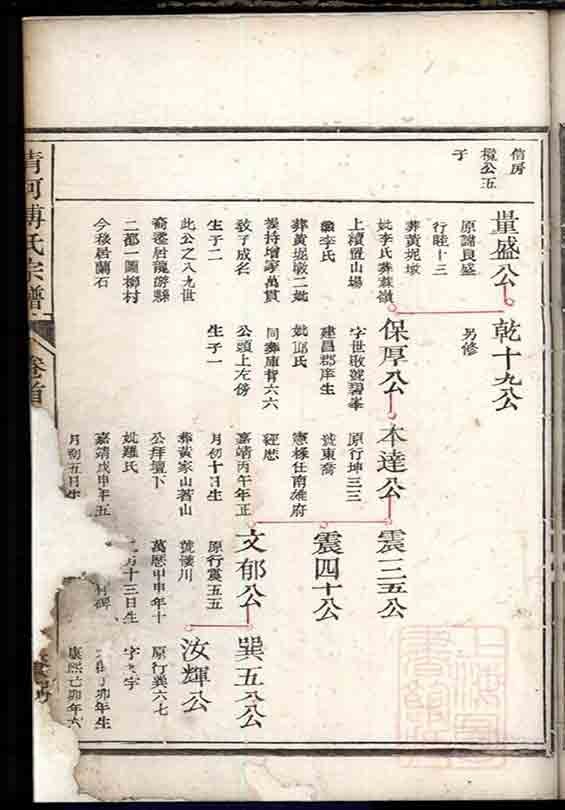 儅房
欉公五
子
量盛公
原諱良盛
行睦十三
葬黃坭坡
妣李氏葬蔡嶺
上續置山場
繼李氏
葬黃坭墩二妣
裴持增家萬貫
教子成名
生子二
此公之入九世
裔遷居龍游縣
二都一圖柳村
今移居蘭石
乾十九公
另修
保厚公
字世敢號碧峯
建昌郡庠生
妣邱氏
同葬庫背六六
公頭上左傍
生子一
本達公
原行坤三三
號東喬
憲橡任南雄府
經歷
嘉靖丙午年正
月初十日生
葬黃家山蓍山
公拜壇下
妣羅氏
嘉靖戊申年五
月初五日生
震三五公
震四十公
文郁公
原行震五五
號蓌川
萬曆甲申年十
月十三日生
巽五八公
汝輝公
原行巽六七
字文宇
卯年生
康熙己卯年六
清河傅氏宗譜
卷首